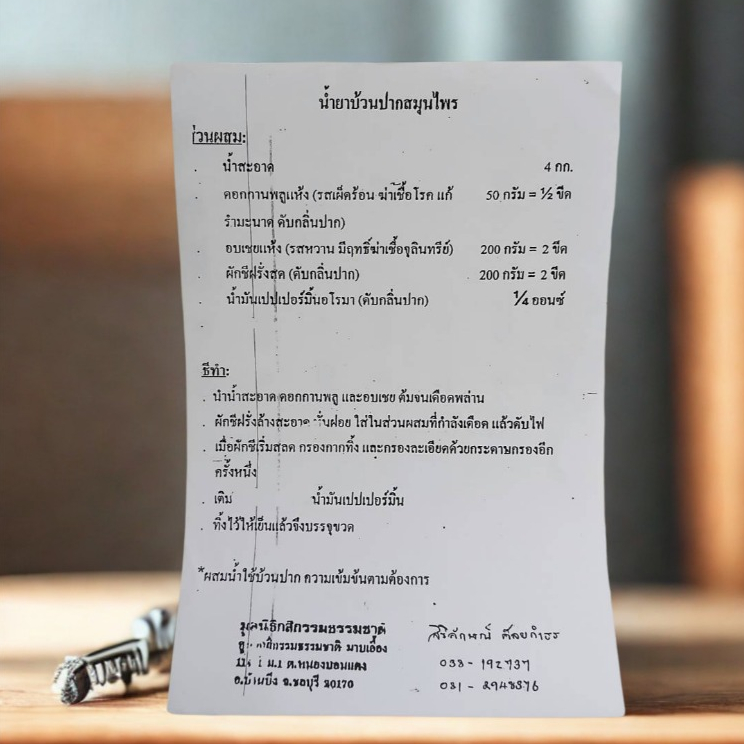 น้ำยาบ้วนปากสมุนไพร
่วนผสม:
. น้ำสะอาด 4 กก.
. ดอกกานพลูแห้ง (รสเผ็ดร้อน ฆ่าเชื้อโรค แก้ 50 กรัม = ½ ขีด
รำมะนาด ดับกลิ่นปาก)
. อบเชยแห้ง (รสหวาน มีฤทธิ์ฆ่าเชื้อจุลินทรีย์) 200 กรัม = 2 ขีด
. ผักชีฝรั่งสด (ดับกลิ่นปาก) 200 กรัม = 2 ขีด
. น้ำมันเปปเปอร์มิ้นอโรมา (ดับกลิ่นปาก) ¼ ออนซ์
ธีทำ:
. นำน้ำสะอาด ดอกกานพลู และอบเชย ต้มจนเดือดพล่าน
. ผักชีฝรั่งล้างสะอาด หั่นฝอย ใส่ในส่วนผสมที่กำลังเดือด แล้วดับไฟ
. เมื่อผักชีเริ่มสลด กรองกากทิ้ง และกรองละเอียดด้วยกระดาษกรองอีก
ครั้งหนึ่ง
. เติม น้ำมันเปปเปอร์มิ้น
. ทิ้งไว้ให้เย็นแล้วจึงบรรจุขวด
*ผสมน้ำใช้บ้วนปาก ความเข้มข้นตามต้องการ
มูลนิธิกสิกรรมธรรมชาติ
กสิกรรมธรรมชาติ มาบเอื้อง
ม.1 ต.หนองบอนแดง
อ.บ้านบึง จ.ชลบุรี 20170
038-192737
081-2948376